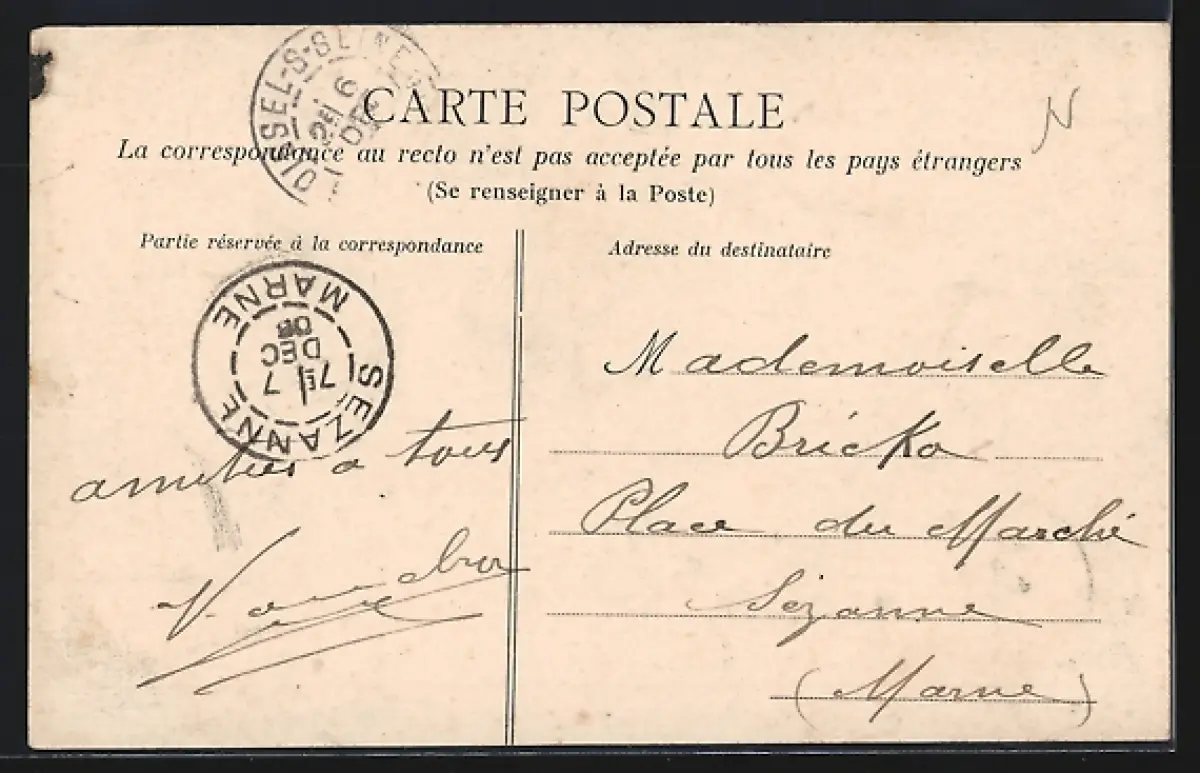 OISSEL-S-SEINE
6
DEC
CARTE POSTALE
La correspondance au recto n'est pas acceptée par tous les pays étrangers
(Se renseigner à la Poste)
N
Partie réservée à la correspondance
SEZANNE
MARNE
7
DEC
08
amitiés a tous
Adresse du destinataire
Mademoiselle
Bricka
Place du Marché
Sézanne
(Marne)